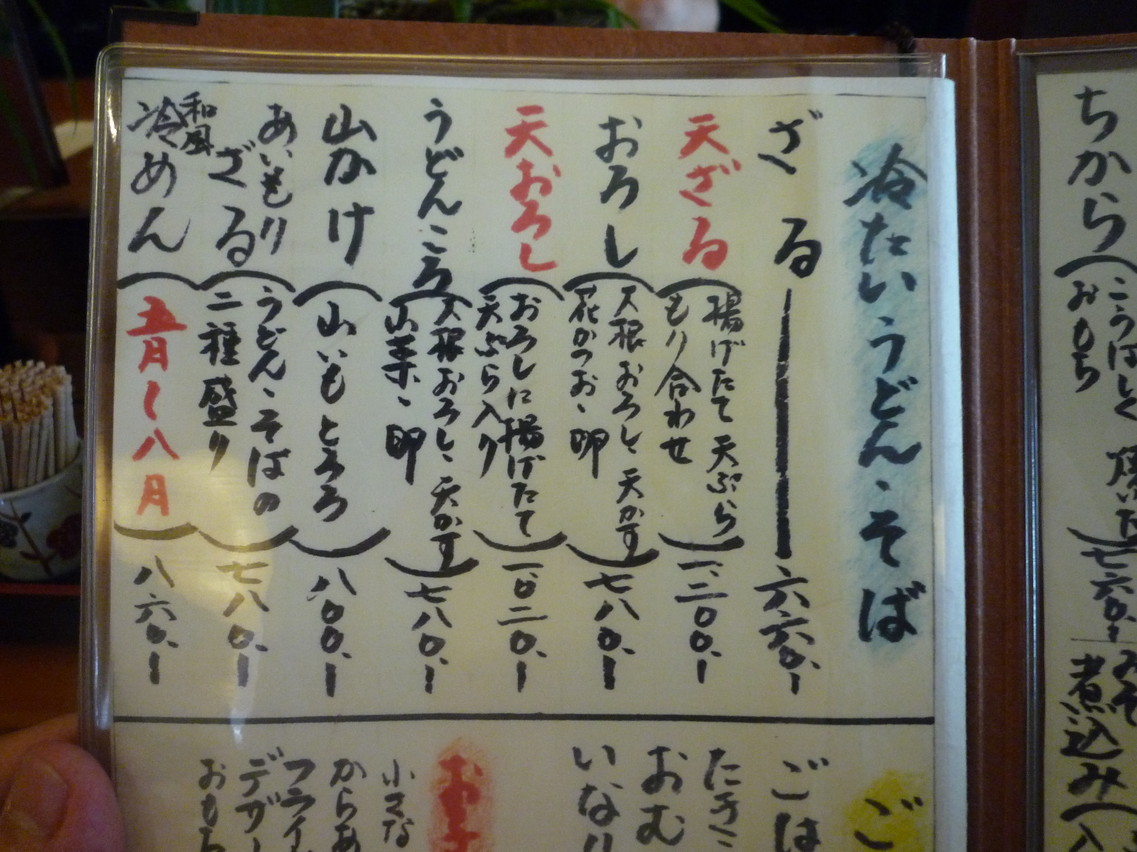 ちから
(こうばしく
おもち
七六〇、ー
煮込み(
冷たいうどん・そば
ざる ー 六六〇、ー
天ざる
(揚げたて天ぷら
もり合わせ)
一、二〇〇、ー
おろし
(大根おろし、天かす
花かつお、卵)
七八〇、ー
天おろし
(おろしに揚げたて
天ぷら入り)
一、〇二〇、ー
うどんころ
(大根おろし、天かす
山菜、卵)
七八〇、ー
山かけ
(山いもとろろ)
八〇〇、ー
あいもり
ざる
(うどん・そばの
二種盛り)
七八〇、ー
和風
冷めん
(五月〜八月)
八六〇、ー
ご
ごは
たきこ
おむ
いなり
お子
小さな
からあ
フライ
デザー
おもち